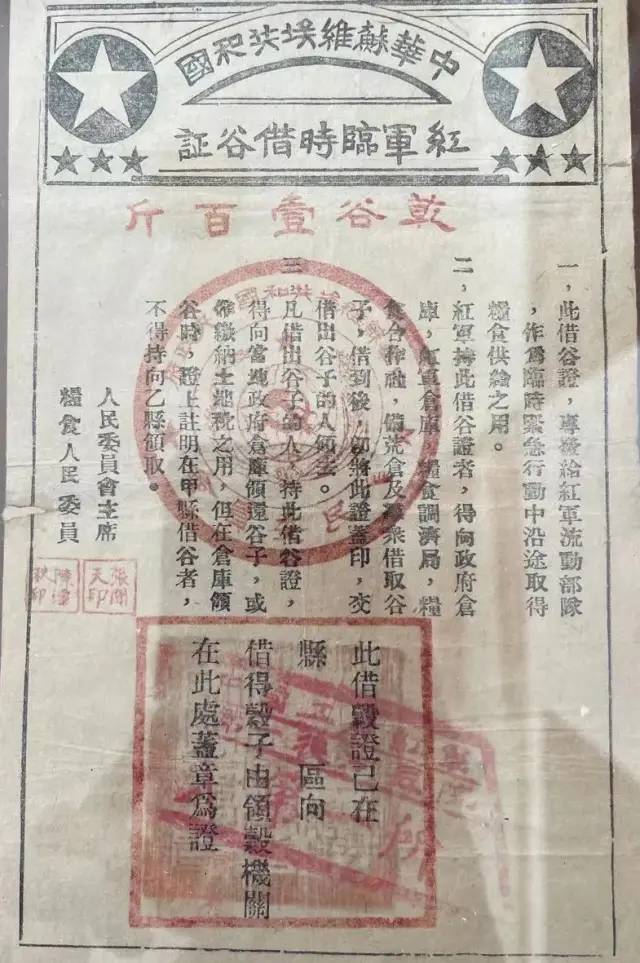 中華蘇維埃共和國
紅軍臨時借谷証
乾谷壹百斤
一，此借谷證，專發給紅軍流動部隊
，作爲臨時緊急行動中沿途取得
糧食供給之用。
二，紅軍持此借谷證者，得向政府倉
庫，紅軍倉庫，糧食調濟局，糧
食合作社，備荒倉及羣衆借取谷
子，借到後，卽將此證蓋印，交
借出谷子的人領去。
三，凡借出谷子的人，持此借谷證，
得向當地政府倉庫領還谷子，或
作繳納土地稅之用，但在倉庫領
谷時，證上註明在甲縣借谷者，
不得持向乙縣領取。
人民委員會主席
糧食人民委員
張聞天印
陳潭秋印
此借穀證已在
縣 區向
借得穀子由領穀機關
在此處蓋章爲證